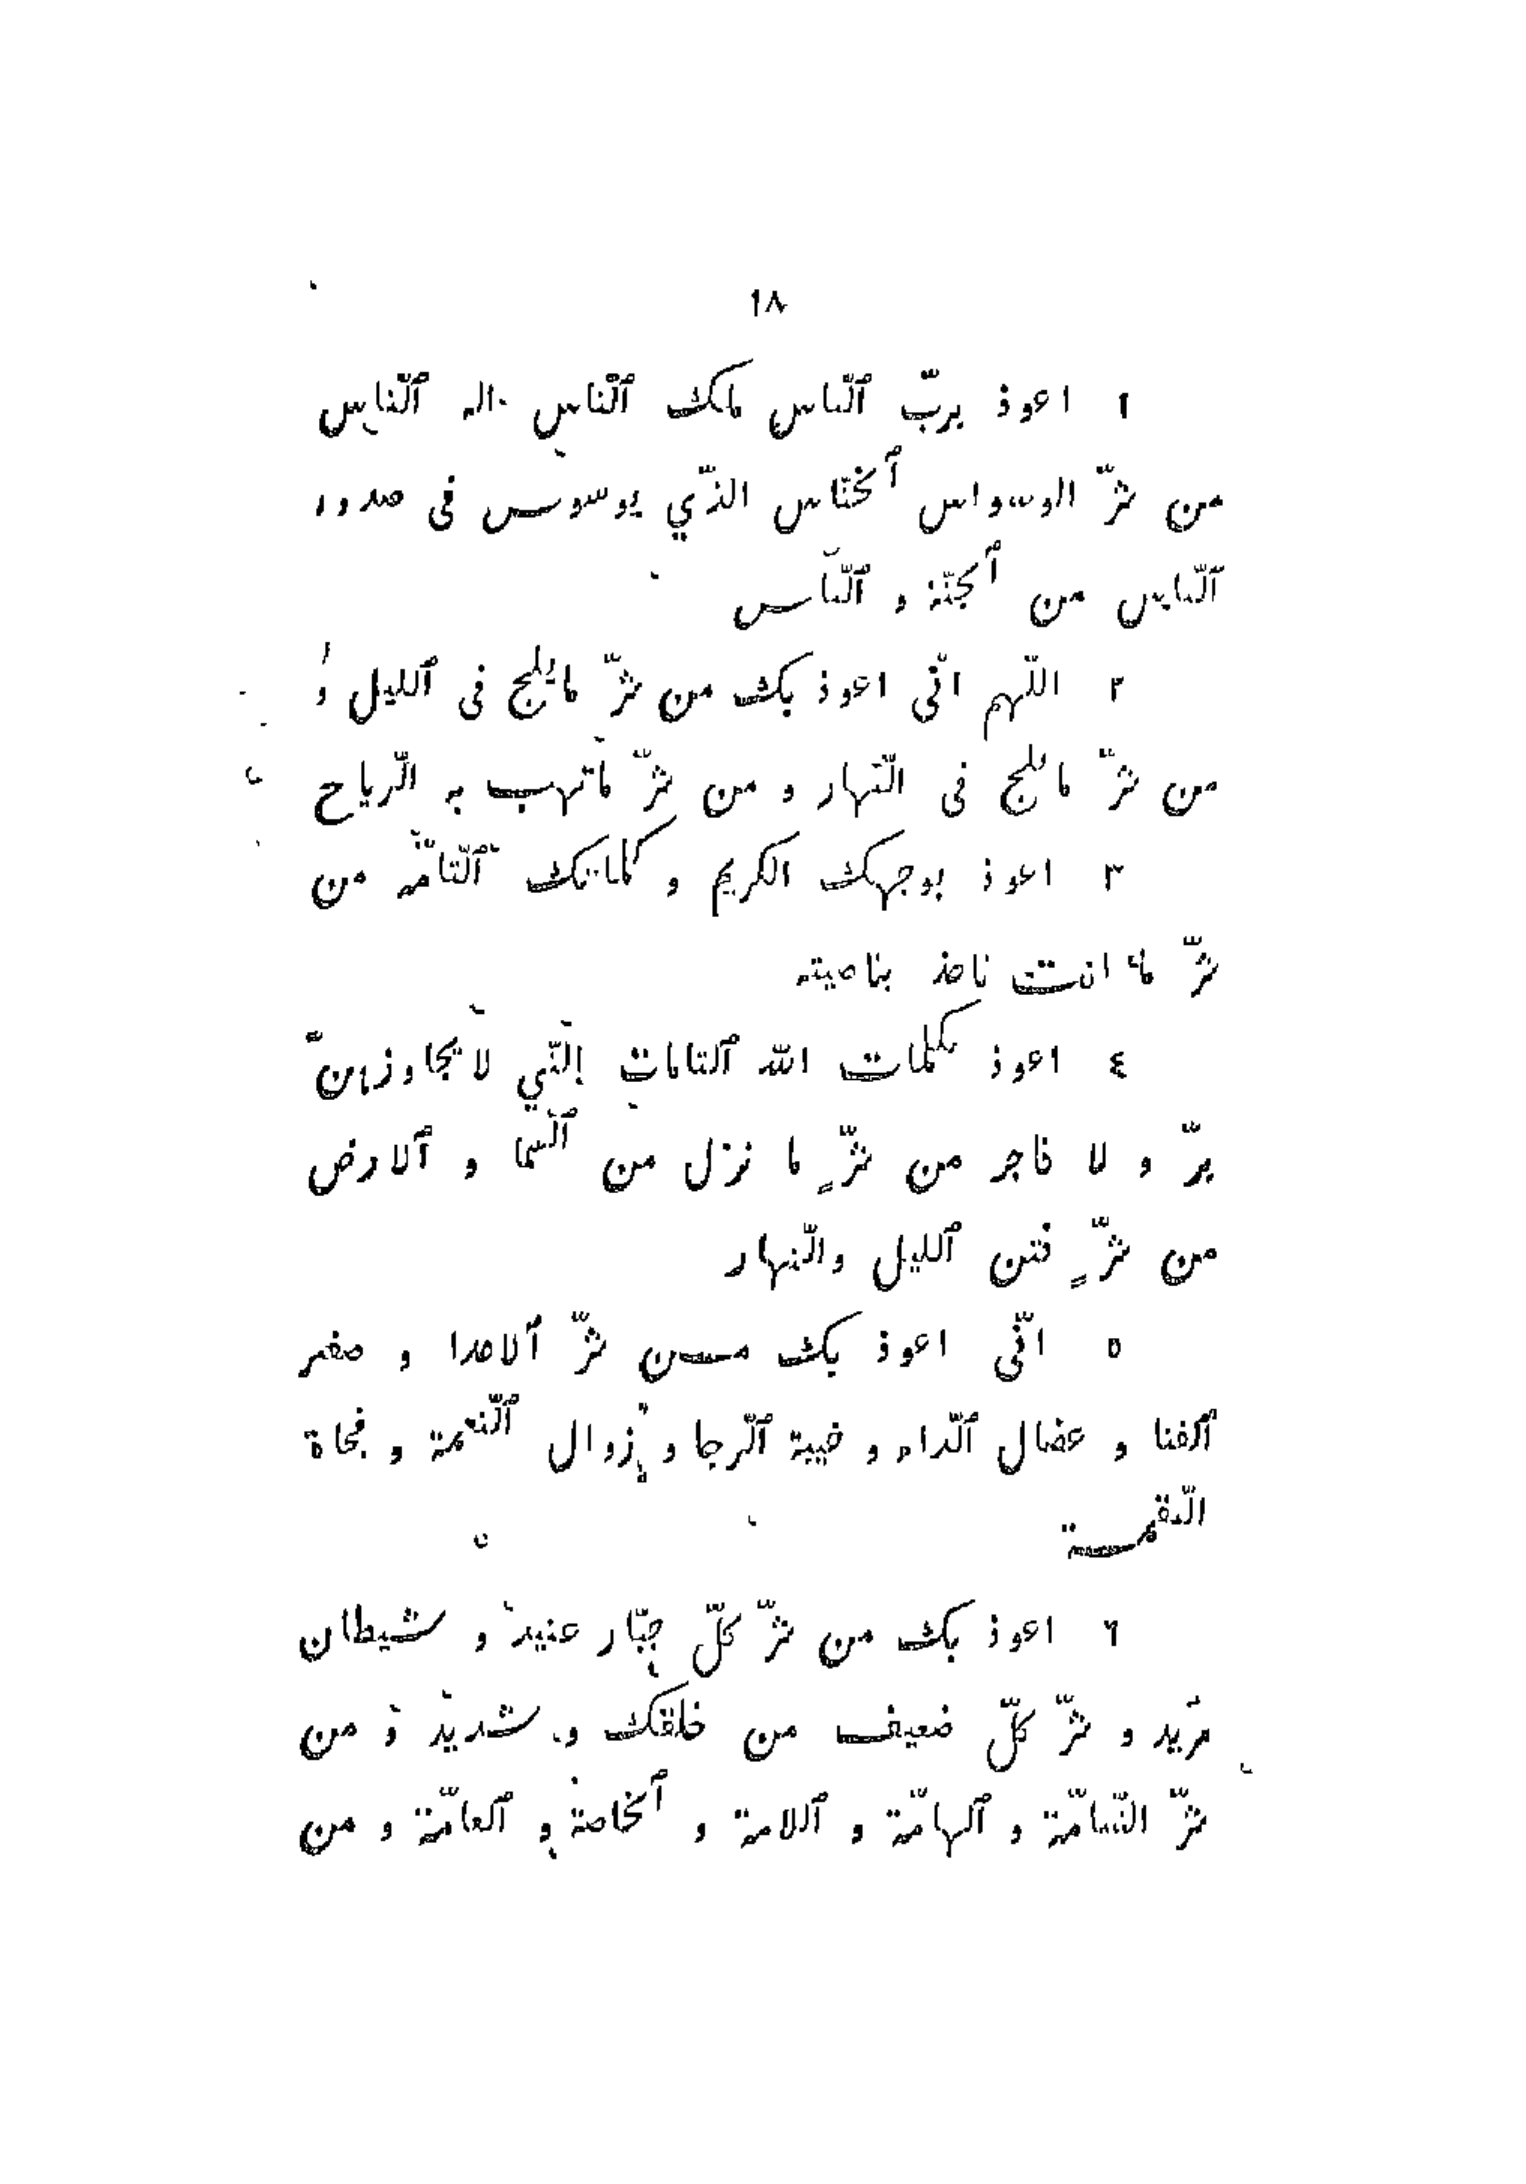 ١٨
١ اعوذ بربّ ٱلنّاس ملك ٱلنّاس اله ٱلنّاس
من شرّ الوسواس ٱلخنّاس الذّي يوسوس فى صدور
ٱلنّاس من ٱلجنّة و ٱلنّاس
٢ اللّهم انّى اعوذ بك من شرّ ما يلج فى ٱلليل و
من شرّ ما يلج فى النّهار و من شرّ ما تهب به الرّياح
٣ اعوذ بوجهك الكريم و كلماتك ٱلتّامّه من
شرّ ما انت ناصذ بناصيته
٤ اعوذ بكلمات الله ٱلتامات الّتي لا يجاوزهنّ
برّ و لا فاجر من شرٍّ ما نزل من ٱلسّما و ٱلارض
من شرٍّ فتن ٱلليل والنّهار
٥ انّى اعوذ بك من شرّ ٱلاعدا و صغر
ٱلفنا و عضال ٱلدّاء و خيبة ٱلرّجا و زوال ٱلنّعمة و فجاة
النّقمة
٦ اعوذ بك من شرّ كلّ جبّار عنيد و شيطان
مريد و شرّ كلّ ضعيف من خلقك و شديد و من
شرّ السّامّة و ٱلهامّة و ٱللامة و ٱلخاصة و ٱلعامّة و من